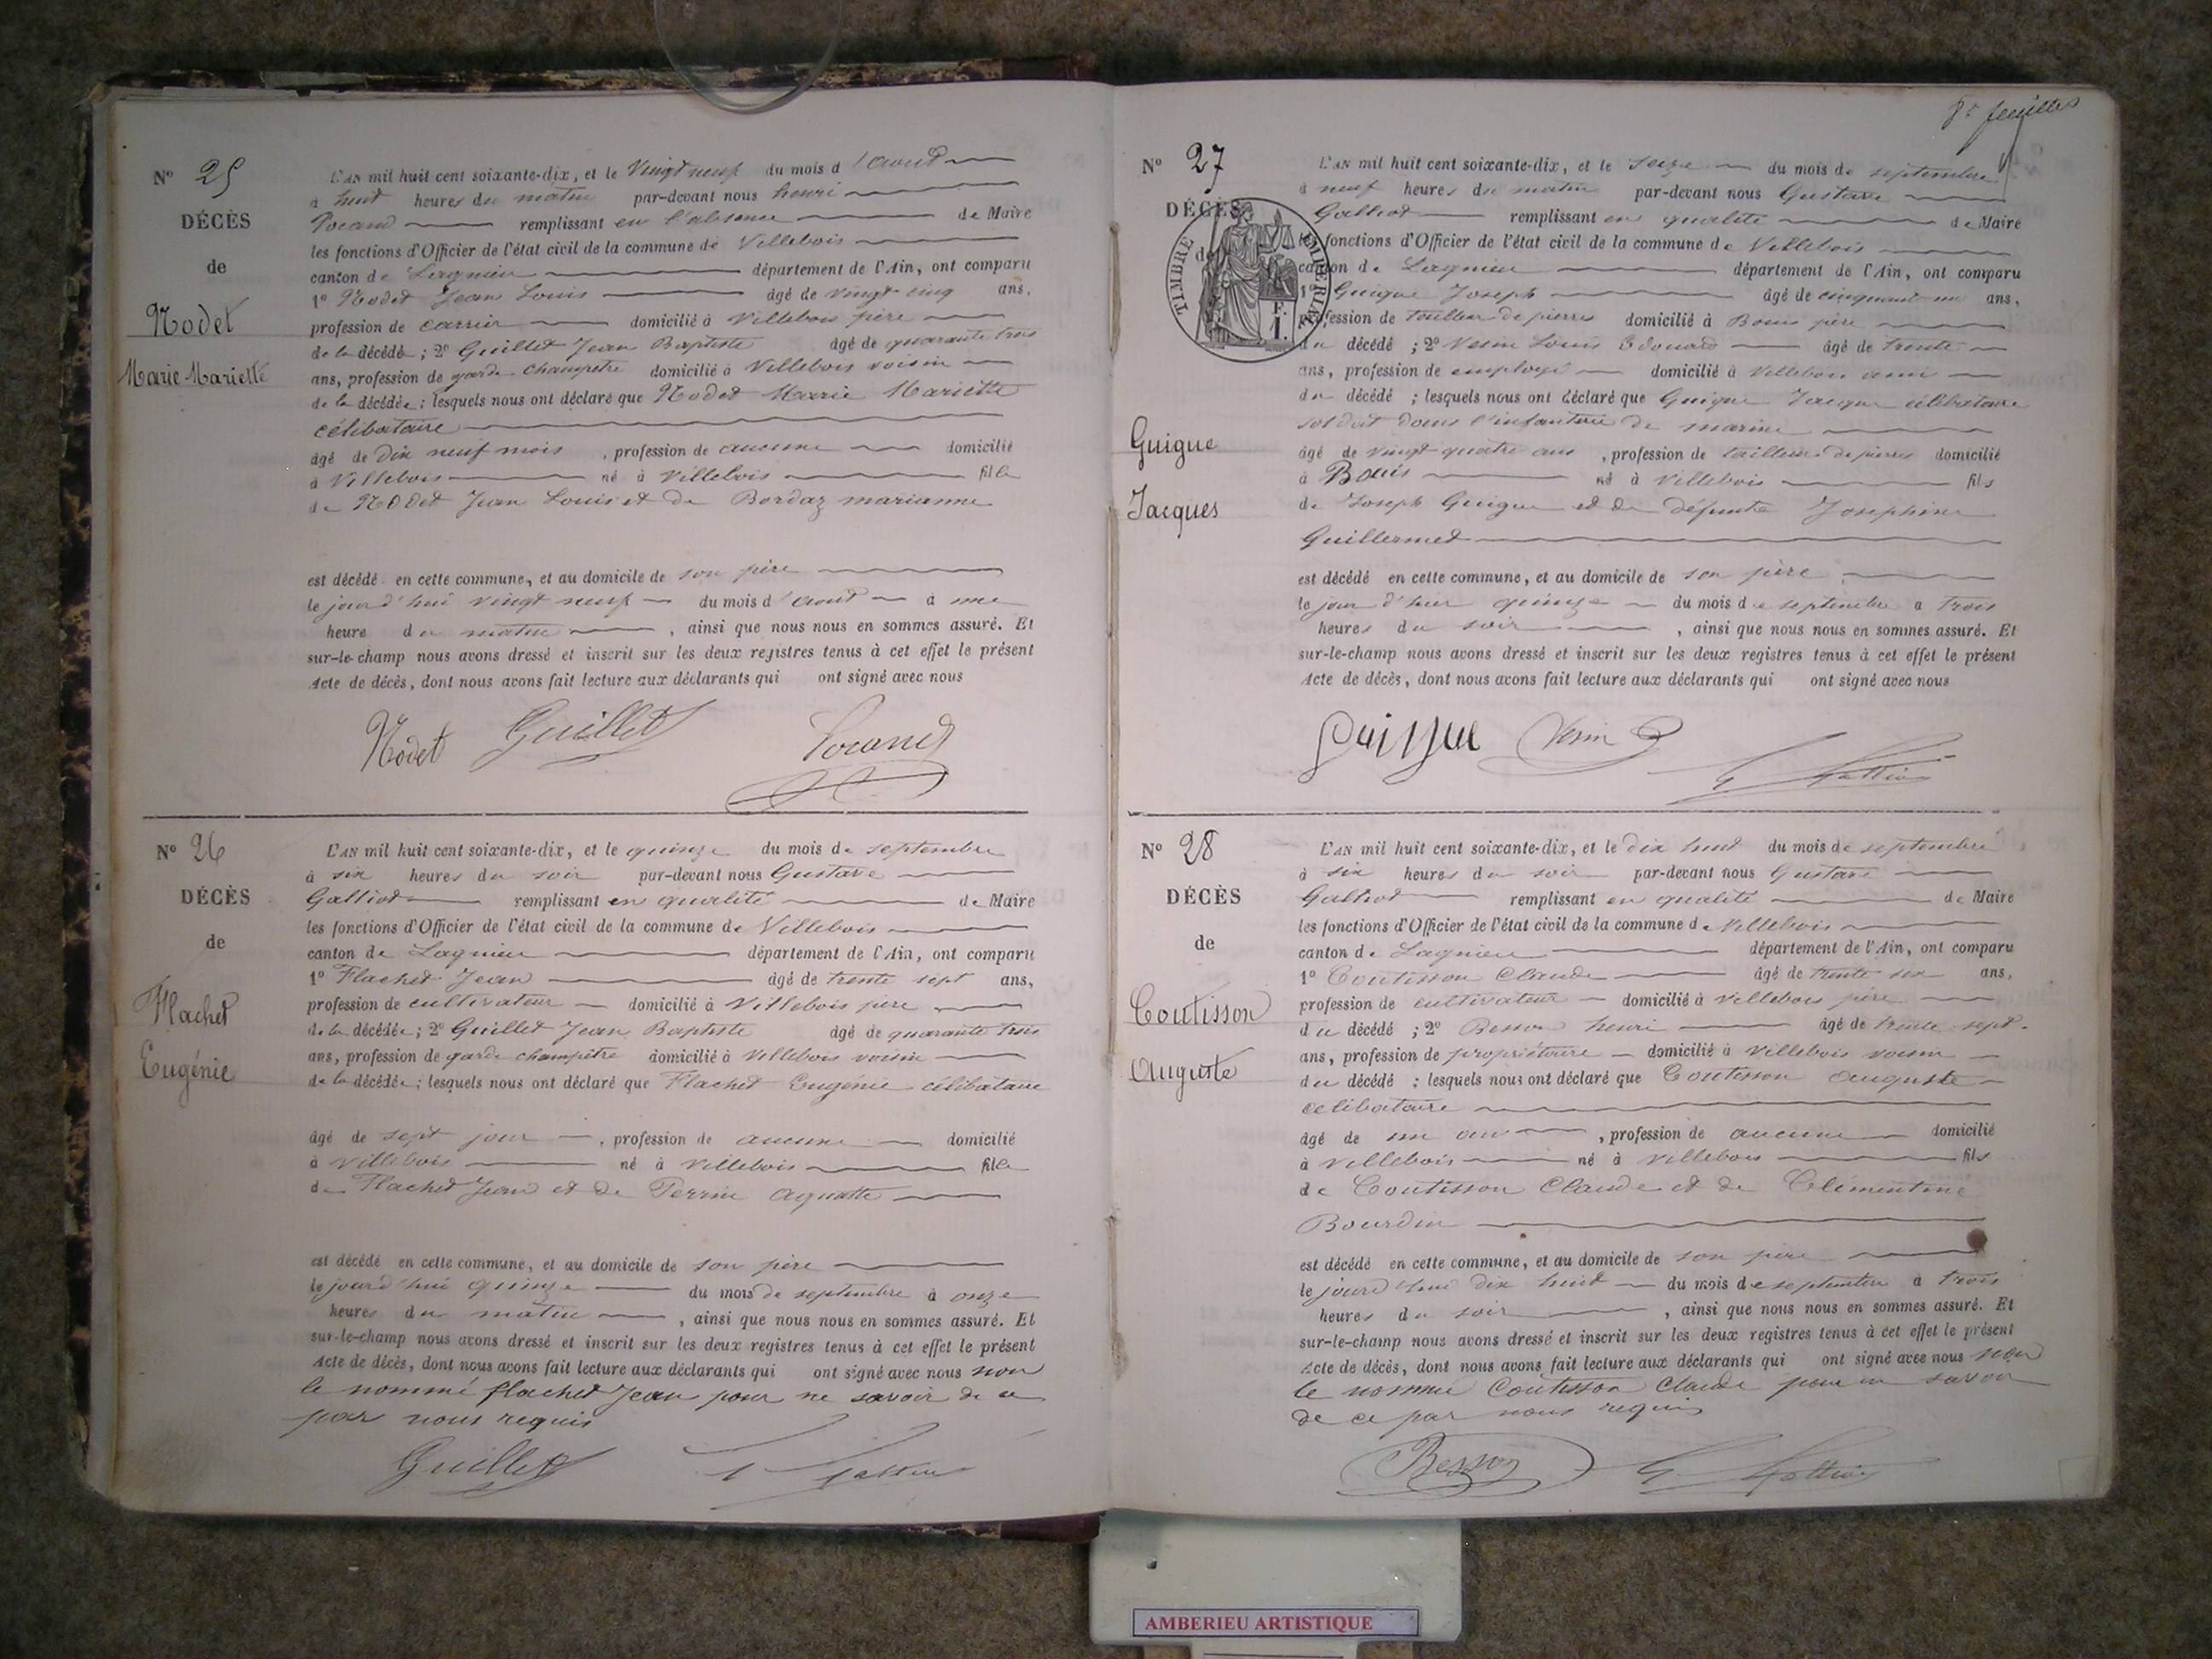 Nº 25
DÉCÈS
de
Nodet
Marie Mariette
L'AN mil huit cent soixante-dix, et le Vingt neuf du mois d'aout
à huit heures du matin par-devant nous henri
Locand remplissant en l'absence de Maire
les fonctions d'Officier de l'état civil de la commune de Villebois
canton de Lagnieu département de l'Ain, ont comparu
1º Nodet Jean Louis âgé de vingt cinq ans,
profession de carrier domicilié à Villebois père
de la décédé ; 2º Guillet Jean Baptiste âgé de quarante trois
ans, profession de garde champêtre domicilié à Villebois voisin
de la décédée ; lesquels nous ont déclaré que Nodet Marie Mariette
célibataire
âgé de dix neuf mois , profession de aucune domicilié
à Villebois né à Villebois fille
de Nodet Jean Louis et de Bordaz marianne
est décédé en cette commune, et au domicile de son père
le jourd'hui vingt neuf du mois d'aout à une
heure du matin , ainsi que nous nous en sommes assuré. Et
sur-le-champ nous avons dressé et inscrit sur les deux registres tenus à cet effet le présent
Acte de décès, dont nous avons fait lecture aux déclarants qui ont signé avec nous
Nodet Guillet Locand
Nº 26
DÉCÈS
de
Flachet
Eugénie
L'AN mil huit cent soixante-dix, et le quinze du mois de septembre
à six heures du soir par-devant nous Gustave
Galliot remplissant en qualité de Maire
les fonctions d'Officier de l'état civil de la commune de Villebois
canton de Lagnieu département de l'Ain, ont comparu
1º Flachet Jean âgé de trente sept ans,
profession de cultivateur domicilié à Villebois père
de la décédée ; 2º Guillet Jean Baptiste âgé de quarante trois
ans, profession de garde champêtre domicilié à Villebois voisin
de la décédée ; lesquels nous ont déclaré que Flachet Eugénie célibataire
âgé de sept jour , profession de aucune domicilié
à Villebois né à Villebois fille
de Flachet Jean et de Perrin
est décédé en cette commune, et au domicile de son père
le jourd'hui quinze du mois de septembre à onze
heures du matin , ainsi que nous nous en sommes assuré. Et
sur-le-champ nous avons dressé et inscrit sur les deux registres tenus à cet effet le présent
Acte de décès, dont nous avons fait lecture aux déclarants qui ont signé avec nous non
le nommé flachet Jean pour ne savoir de ce
par nous requis
Guillet
8e feuilles
Nº 27
DÉCÈS
de
TIMBRE IMPÉRIAL
F.
1.
Guigue
Jacques
L'AN mil huit cent soixante-dix, et le seize du mois de septembre
à neuf heures du matin par-devant nous Gustave
Galliot remplissant en qualité de Maire
les fonctions d'Officier de l'état civil de la commune de Villebois
canton de Lagnieu département de l'Ain, ont comparu
1º Guigue Joseph âgé de cinquante un ans,
profession de tailleur de pierres domicilié à Bouis père
du décédé ; 2º Vesin Louis Edouard âgé de trente
ans, profession de employé domicilié à Villebois ami
du décédé ; lesquels nous ont déclaré que Guigue Jacque célibataire
soldat dans l'infanterie de marine
âgé de vingt quatre ans , profession de tailleur de pierres domicilié
à Bouis né à Villebois fils
de Joseph Guigue et de défunte Josephine
Guillermet
est décédé en cette commune, et au domicile de son père
le jour d'hier quinze du mois de septembre à trois
heures du soir , ainsi que nous nous en sommes assuré. Et
sur-le-champ nous avons dressé et inscrit sur les deux registres tenus à cet effet le présent
Acte de décès, dont nous avons fait lecture aux déclarants qui ont signé avec nous
Guigue Vesin
Nº 28
DÉCÈS
de
Coutisson
Auguste
L'AN mil huit cent soixante-dix, et le dix huit du mois de septembre
à six heures du soir par-devant nous Gustave
Galliot remplissant en qualité de Maire
les fonctions d'Officier de l'état civil de la commune de Villebois
canton de Lagnieu département de l'Ain, ont comparu
1º Coutisson Claude âgé de trente six ans,
profession de cultivateur domicilié à Villebois père
du décédé ; 2º Besson henri âgé de trente sept
ans, profession de propriétaire domicilié à Villebois voisin
du décédé ; lesquels nous ont déclaré que Coutisson auguste
celibataire
âgé de un an , profession de aucune domicilié
à Villebois né à Villebois fils
de Coutisson Claude et de Clémentine
Bourdin
est décédé en cette commune, et au domicile de son père
le jourd'hui dix huit du mois de septembre à trois
heures du soir , ainsi que nous nous en sommes assuré. Et
sur-le-champ nous avons dressé et inscrit sur les deux registres tenus à cet effet le présent
Acte de décès, dont nous avons fait lecture aux déclarants qui ont signé avec nous non
le nommé Coutisson Claude pour ne savoir
de ce par nous requis
Besson
AMBERIEU ARTISTIQUE